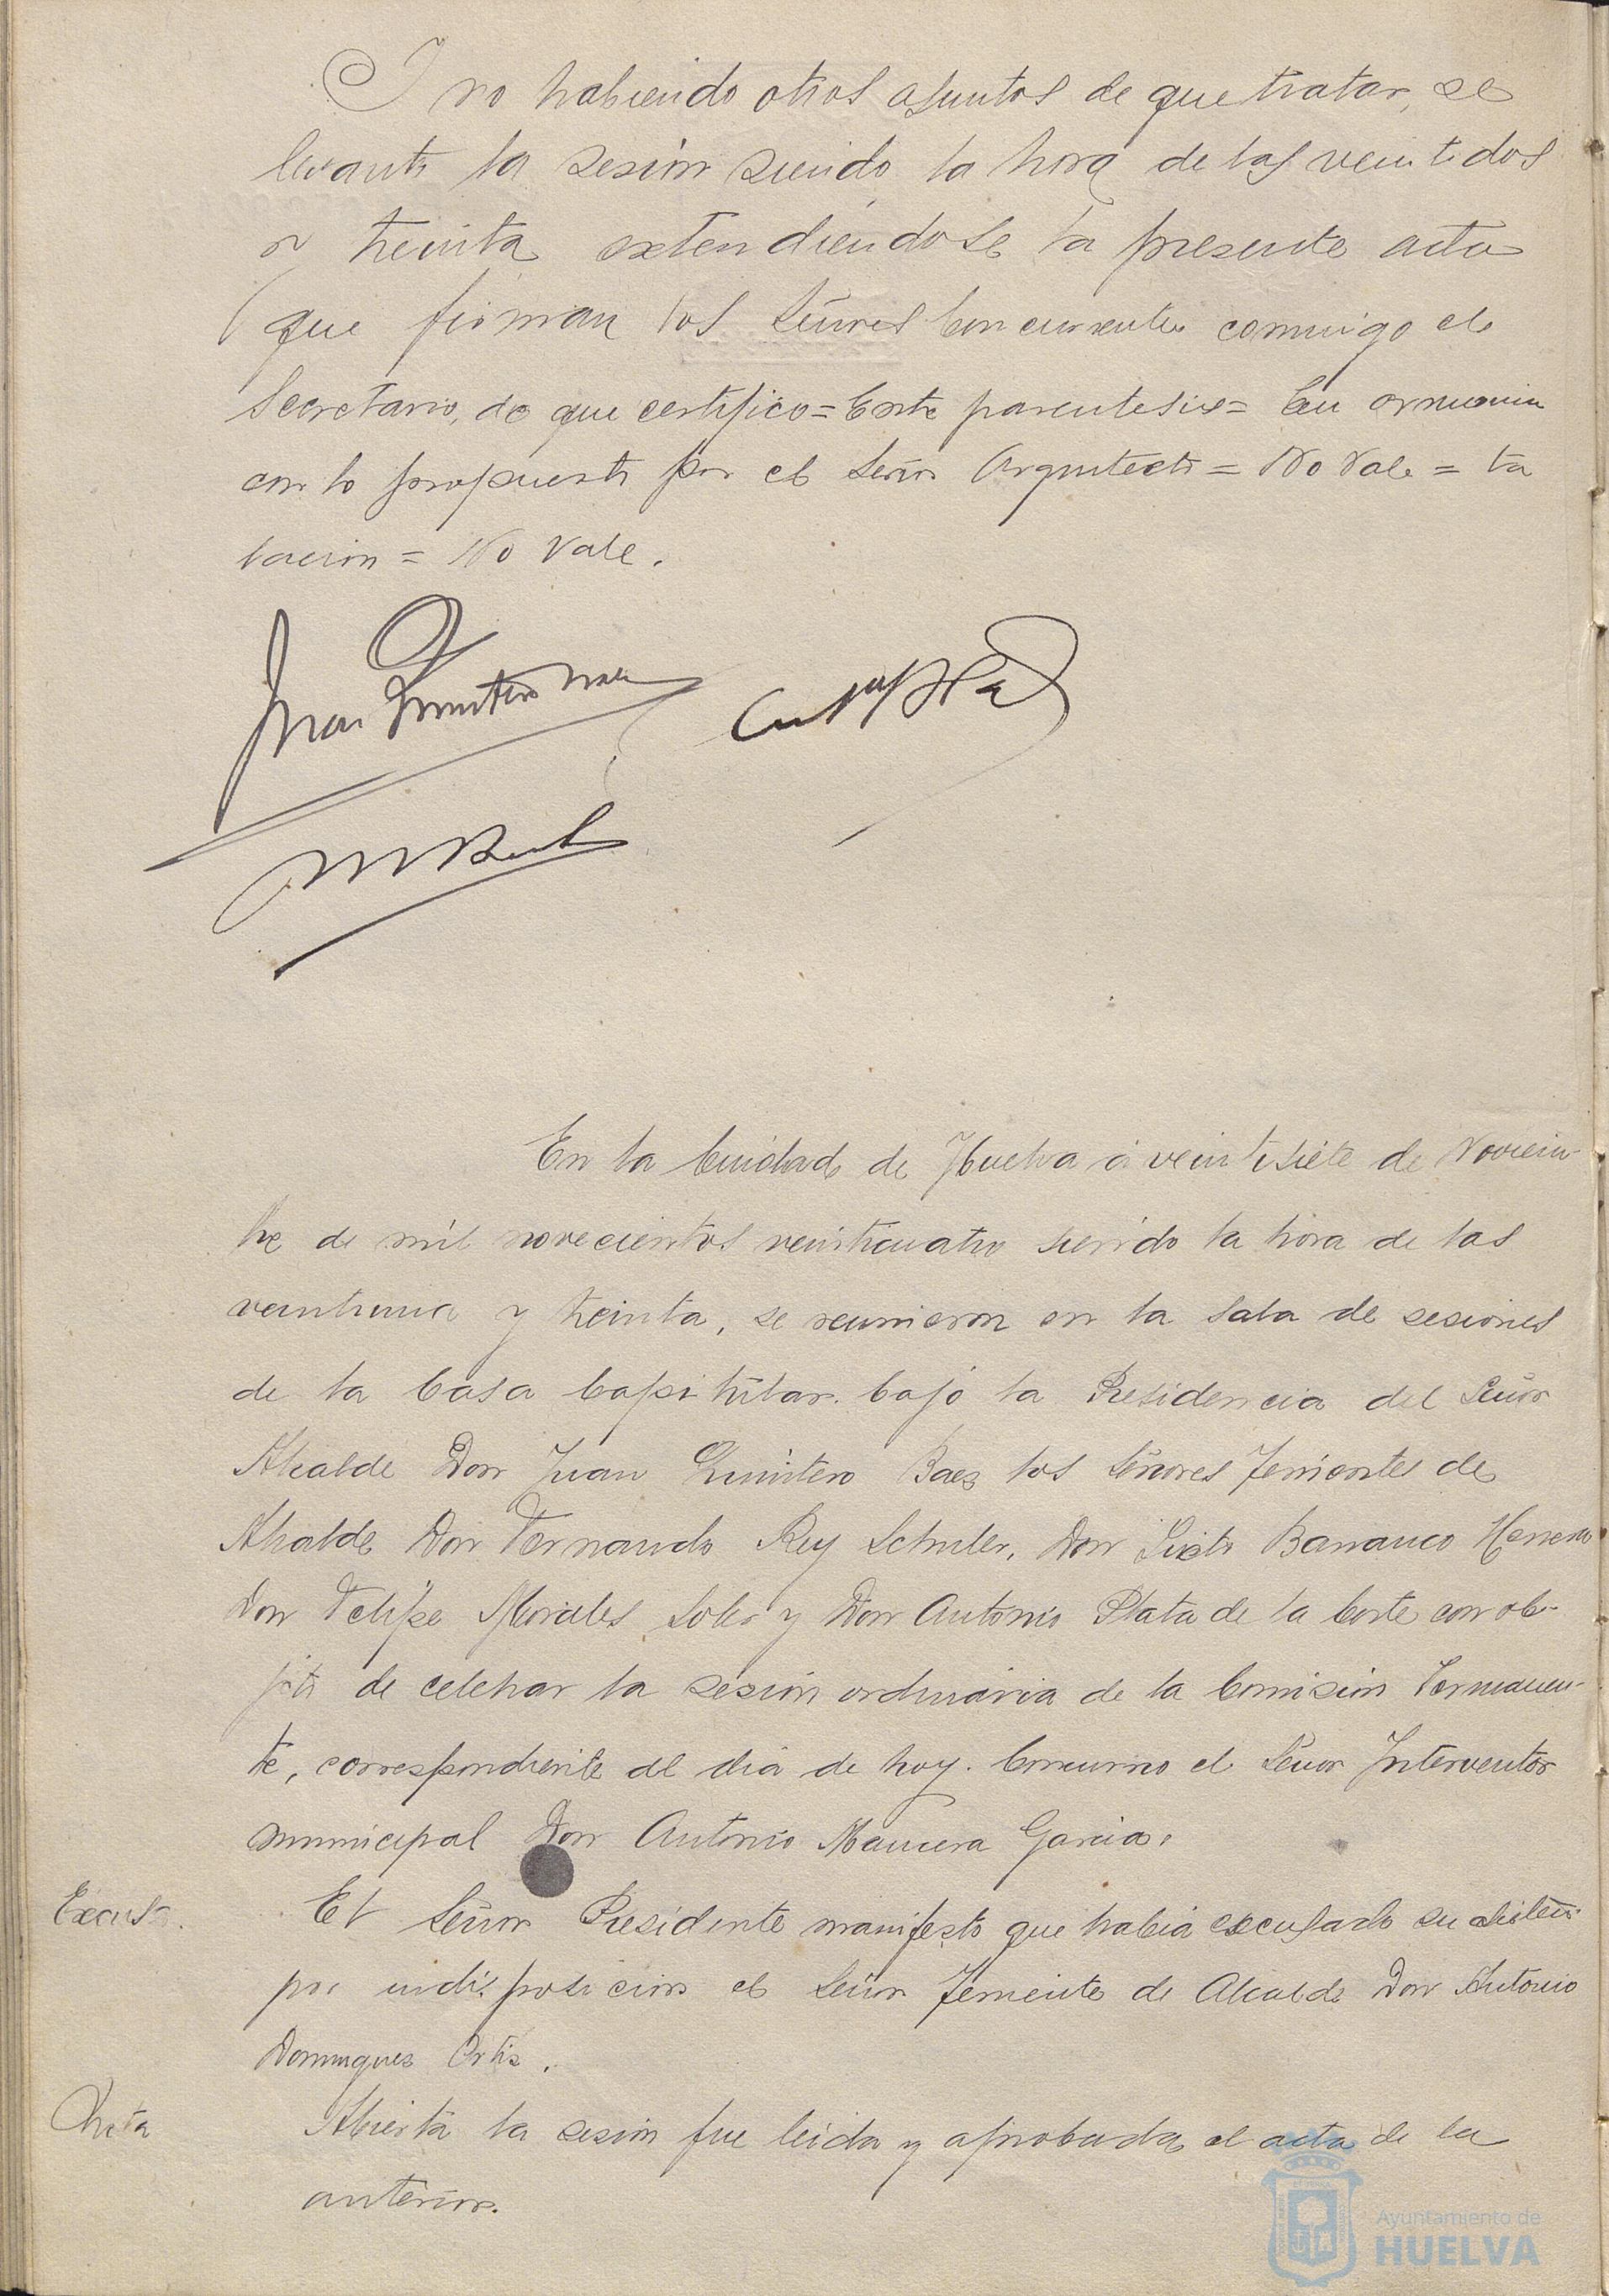 Y no habiendo otros asuntos de que tratar, se
levantó la sesión siendo la hora de las veintidos
y treinta extendiéndose la presente acta
que firman los Señores Concurrentes conmigo el
Secretario, de que certifico = Entre parentesis = En armonia
con lo propuesto por el Señor Arquitecto = No Vale = ta
lación = No Vale.
Juan Quintero Baez
En la Ciudad de Huelva á veintisiete de Noviem-
bre de mil novecientos veinticuatro siendo la hora de las
veintiuna y treinta, se reunieron en la sala de sesiones
de la Casa Capitular bajo la Presidencia del Señor
Alcalde Don Juan Quintero Baez los Señores Tenientes de
Alcalde Don Fernando Rey Schuler, Don Sixto Barranco Herrero
Don Felipe Morales Soler y Don Antonio Plata de la Corte con ob-
jeto de celebrar la sesión ordinaria de la Comisión Permanen-
te, correspondiente al dia de hoy. Concurrió el Señor Interventor
municipal Don Antonio Mancera Garcia.
Excusa. El Señor Presidente manifestó que habia excusado su asisten
por indisposición el Señor Teniente de Alcalde Don Antonio
Dominguez Ortiz.
Acta Abierta la sesión fue leida y aprobada el acta de la
anterior.
Ayuntamiento de
HUELVA